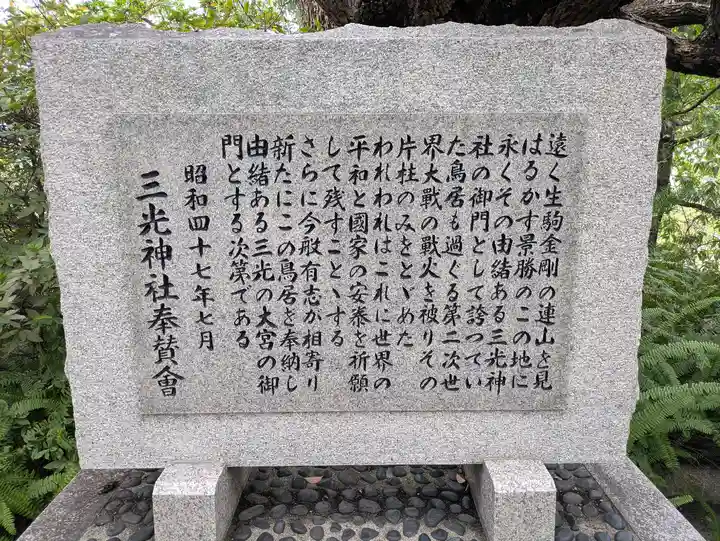 遠く生駒金剛の連山を見
はるかす景勝のこの地に
永くその由緒ある三光神
社の御門として誇ってい
た鳥居も過ぐる第二次世
界大戦の戰火を被りその
片柱のみをとゞめた
われわれはこれに世界の
平和と國家の安泰を祈願
して残すことゝする
さらに今般有志が相寄り
新たにこの鳥居を奉納し
由緒ある三光の大宮の御
門とする次第である
昭和四十七年七月
三光神社奉賛會